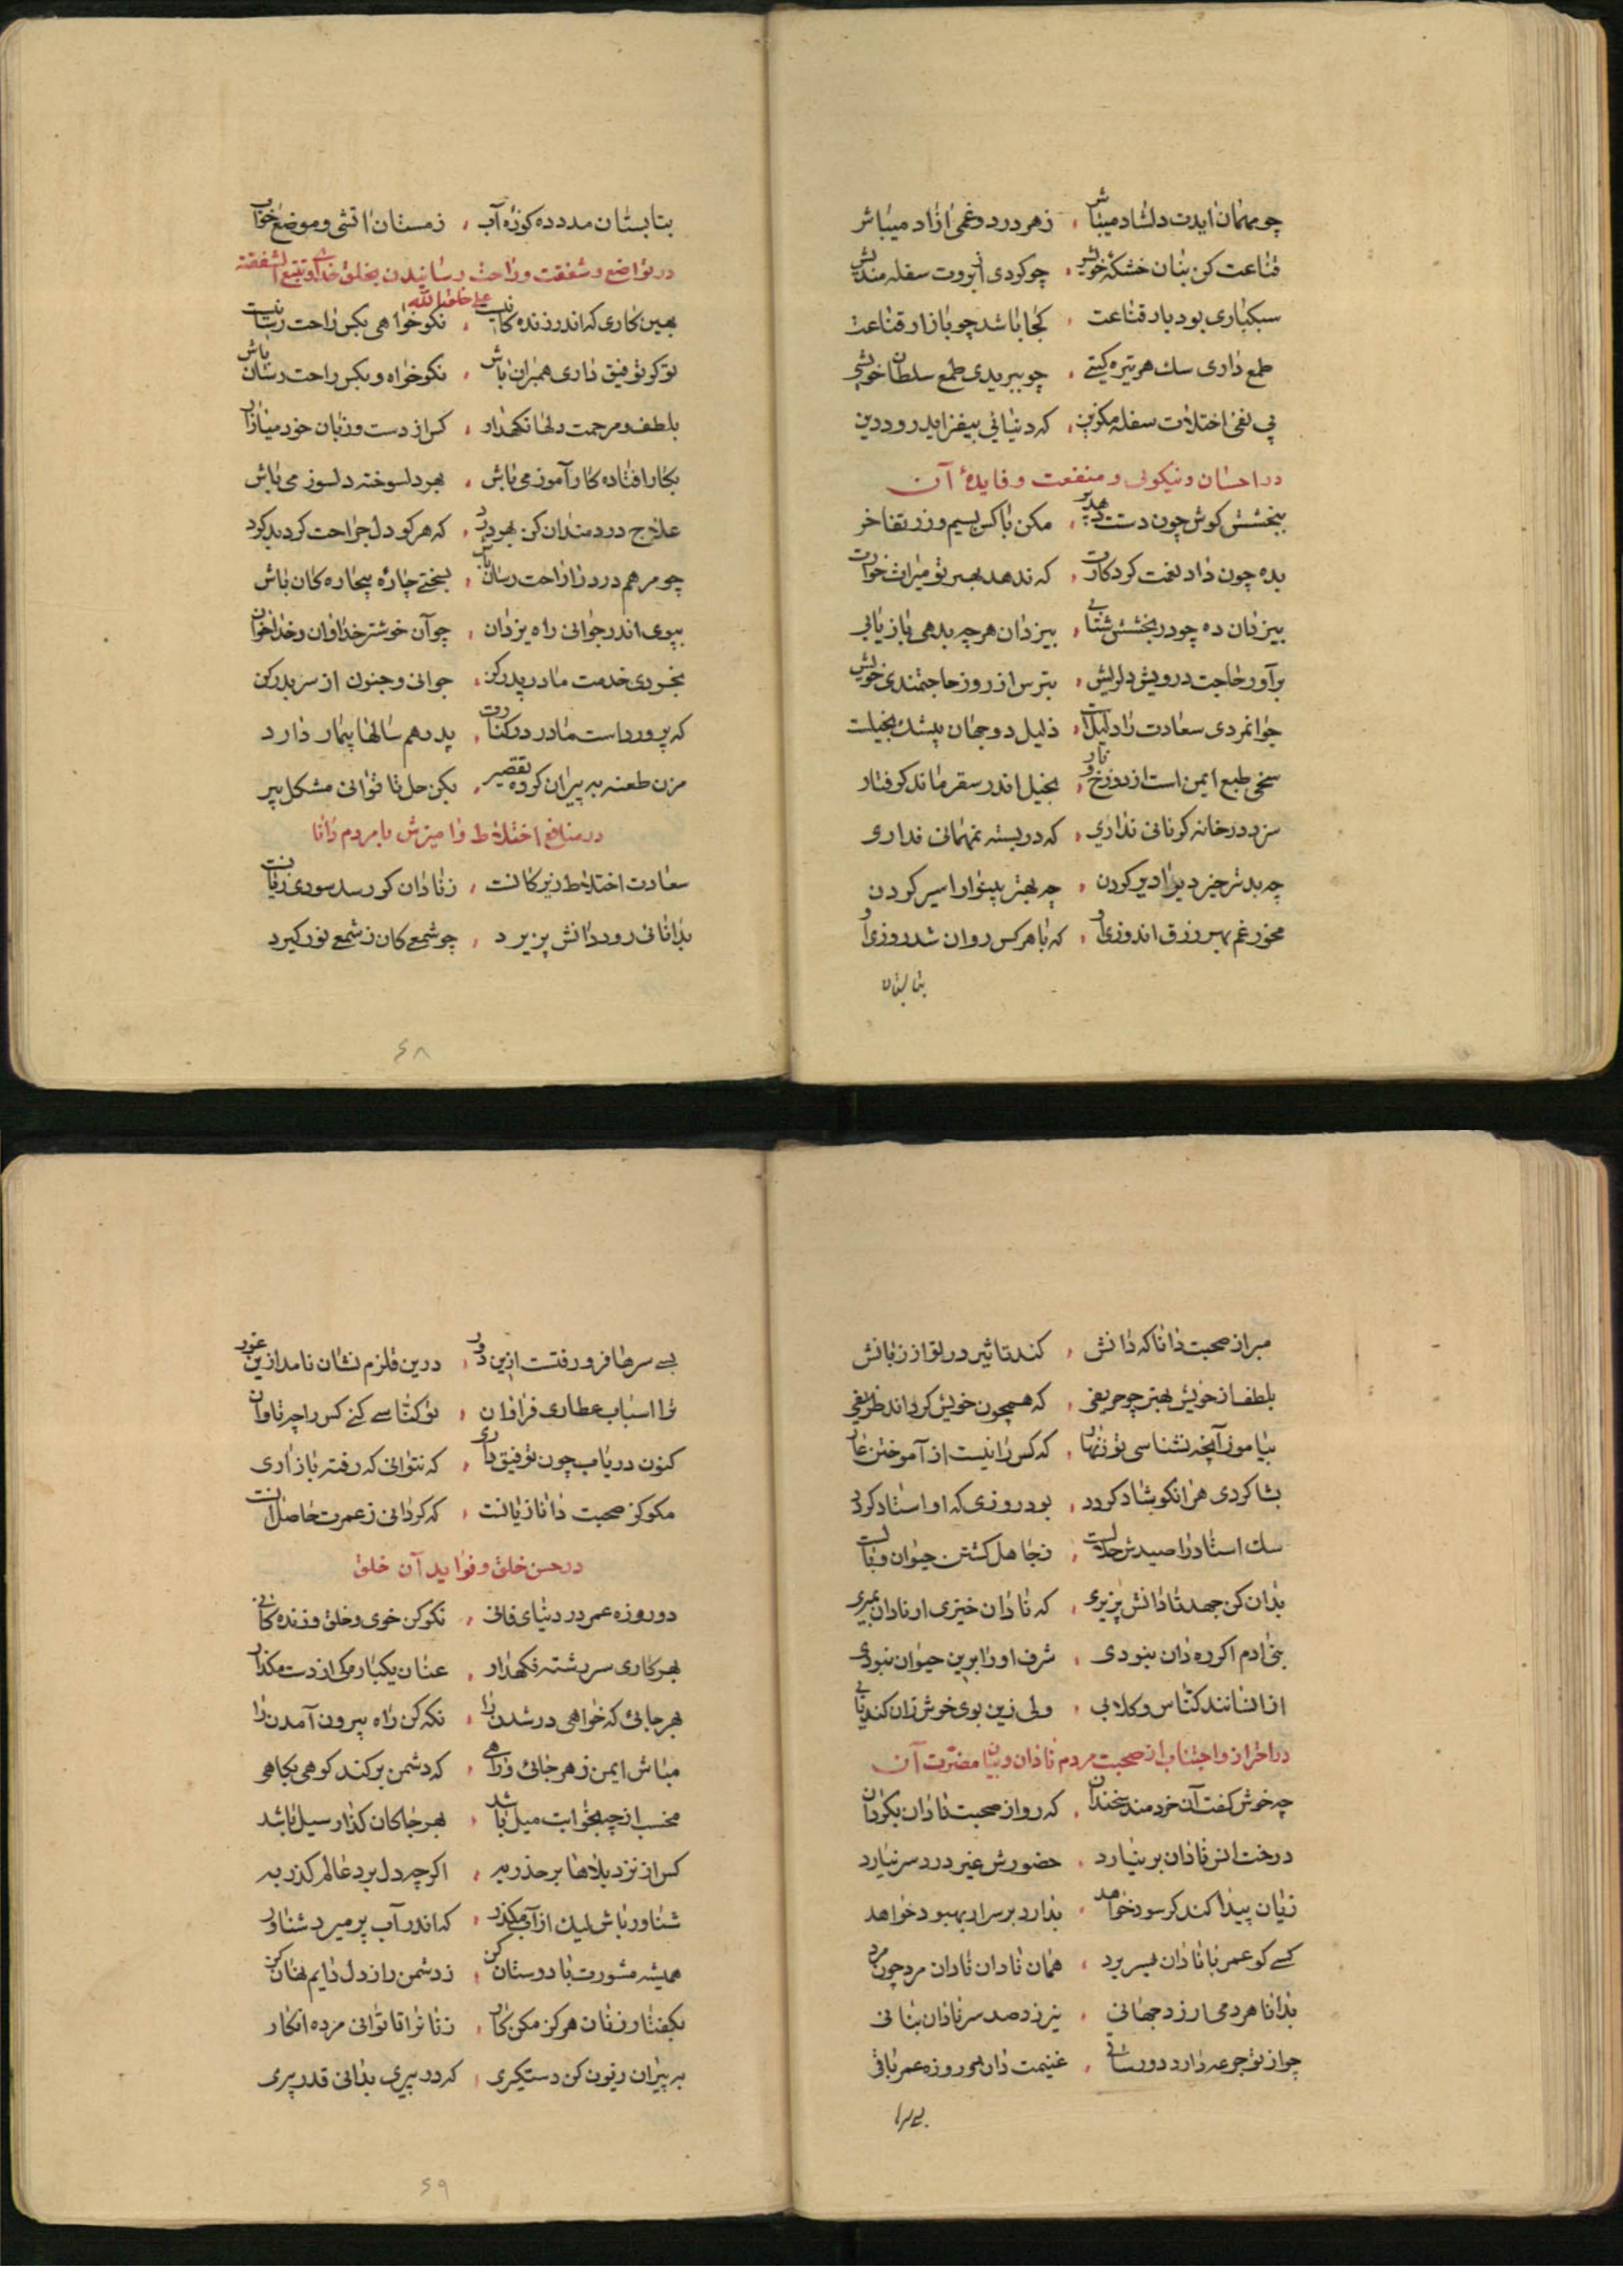 چو مهمان ایدت دلشاد میباش ، زهر درد و غمی ازاد میباش
قناعت کن بنان خشکهٔ خویش ، چو کردی ابروت سفله مندیش
سبکباری بود بار قناعت ، کجا باشد چو بازار قناعت
طمع داری سك هر تیره کیشی ، چو ببریدی طمع سلطان خویشی
پی نفی اختلات سفله مکزین ، که دنیائی بیفزاید رود دین
در احسان و نیکوئی و منفعت و فایدهٔ آن
ببخشش کوش چون دستت دهد ، مکن با کس بسیم و زر تفاخر
بده چون داد نعمت کردکارت ، که ندهد بهر تو میراث خوارت
بیزدان ده چو در بخشش شتابی ، بیزدان هر چه بدهی باز یابی
برآور حاجت درویش دلریش ، بترس از روز حاجتمندی خویش
جوانمردی سعادت را دلیلست ، ذلیل دو جهان بیشك بخیلست
سخی طبع ایمن است از دوزخ و نار ، بخیل اندر سقر ماند کرفتار
سزد در خانه کر نانی نداری ، که در بسته نمهمانی نداری
چه بدتر خیز دیرا دیر کردن ، چه بهتر بینوارا سیر کردن
مخور غم بهر رزق اندوزی او ، که با هر کس روان شد روزی او
بتابستان
بتابستان مدد ده کوزهٔ آب ، زمستان اتشی و موضع خواب
در تواضع و شفقت و راحت رسانیدن بخلق خدای و تتبع الشفقة
علی خلق الله
بهین کاری که اندر زنده کانیست ، نکو خواهی بکس راحت رسانیست
تو کر توفیق داری همبران باش ، نکو خواه و بکس راحت رسان باش
بلطف و مرحمت دلها نکهدار ، کس از دست و زبان خود میازار
بکار افتاده کار آموز می باش ، بهر دلسوخته دلسوز می باش
علاج دردمندان کن بهر درد ، که هر کو دل جراحت کرد بد کرد
چو مرهم درد را راحت رسان باش ، بسختی چارهٔ بیچاره کان باش
بپوی اندر جوانی راه یزدان ، چو آن خوشتر خدا و ان و خدا خوان
بخوری خدمت مادر پدر کن ، جوانی و جنون از سر بدر کن
که پرورداست مادر در کنارت ، پدر هم سالها پیمار دارد
مزن طعنه به پیران کرده تقصیر ، بکن حل تا توانی مشکل پیر
در منافع اختلاط و امیزش با مردم دانا
سعادت اختلاط زیرکانست ، زنادان کو رسد سودی زیانست
بدانائی رود دانش پزیرد ، چو شمع کان ز شمع نور کیرد
۶۸
مبر از صحبت دانا که دانش ، کند تاثیر در تو از زبانش
بلطف از خویش بهتر چو حریفی ، که همچون خویش کرداند ظریفی
بیاموز آنچه نشناسی تو زنهار ، که کس را نیست از آموختن عار
بشاکردی هر انکو شاد کردد ، بود روزی که او استاد کردد
سك استاد را صیدش حلالست ، ز جاهل کشتن حیوان وبالست
بدان کن جهد تا دانش پزیری ، که نادان خیزی ار نادان بمیری
بنی ادم اکر ره دان نبودی ، شرف او را برین حیوان نبودی
از انسانند کناس و کلابی ، ولی زین بوی خوش زان کند یابی
در احتراز و اجتناب از صحبت مردم نادان و بیان مضرت آن
چه خوش کفت آن خردمند سخندان ، که رو از صحبت نادان بکردان
درخت انس نادان بر نیارد ، حضورش غیر درد سر نیارد
زیان پیدا کند کر سود خواهد ، بد ارد بر سر ار بهبود خواهد
کسی کو عمر با نادان بسر برد ، همان نادان نادان مرد چون مرد
بدانا هر دمی ارزد جهانی ، نیرزد صد سر نادان بنانی
چو از تو جرعه دارد دور ساقی ، غنیمت دان دو روزه عمر باقی
بسی سرها
بسی سرها فرو رفتست ازین دور ، درین قلزم نشان نامد ازین غور
ترا اسباب عطاری فراوان ، تو کناسی کنی کس را چه تاوان
کنون دریاب چون توفیق داری ، که نتوانی که رفته باز آری
مکو کز صحبت دانا زیانست ، که کردانی ز عمرت حاصل انست
در حسن خلق و فواید آن خلق
دو روزه عمر در دنیای فانی ، نکو کن خوی و خلق و زنده کانی
بهر کاری سر رشته نکهدار ، عنان یکباره کی از دست مکذار
بهر جائی که خواهی در شدن را ، نکه کن راه بیرون آمدن را
مباش ایمن ز هر جائی و راهی ، که دشمن بر کند کوهی بکاهی
مخسب ار چه بخوابت میل باشد ، بهر جا کان کذار سیل باشد
کس از نزد بلاها بر حذر به ، اکر چه دل برد عالم کذر به
شناور باش لیك از آب مکذر ، که اندر آب پر میرد شناور
همیشه مشورت با دوستان کن ، ز دشمن راز دل دایم نهان کن
بکفتار زنان هرکز مکن کار ، زنانرا تا توانی مرده انکار
به پیران زبون کن دستکیری ، که در پیری بدانی قدر پیری
۶۹